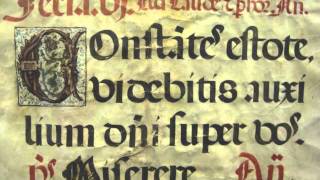 Feria.v. Ad Laude
COnstātes estote,
videbitis auxi
lium dñi super vos.
ps. Miserere. Añ.